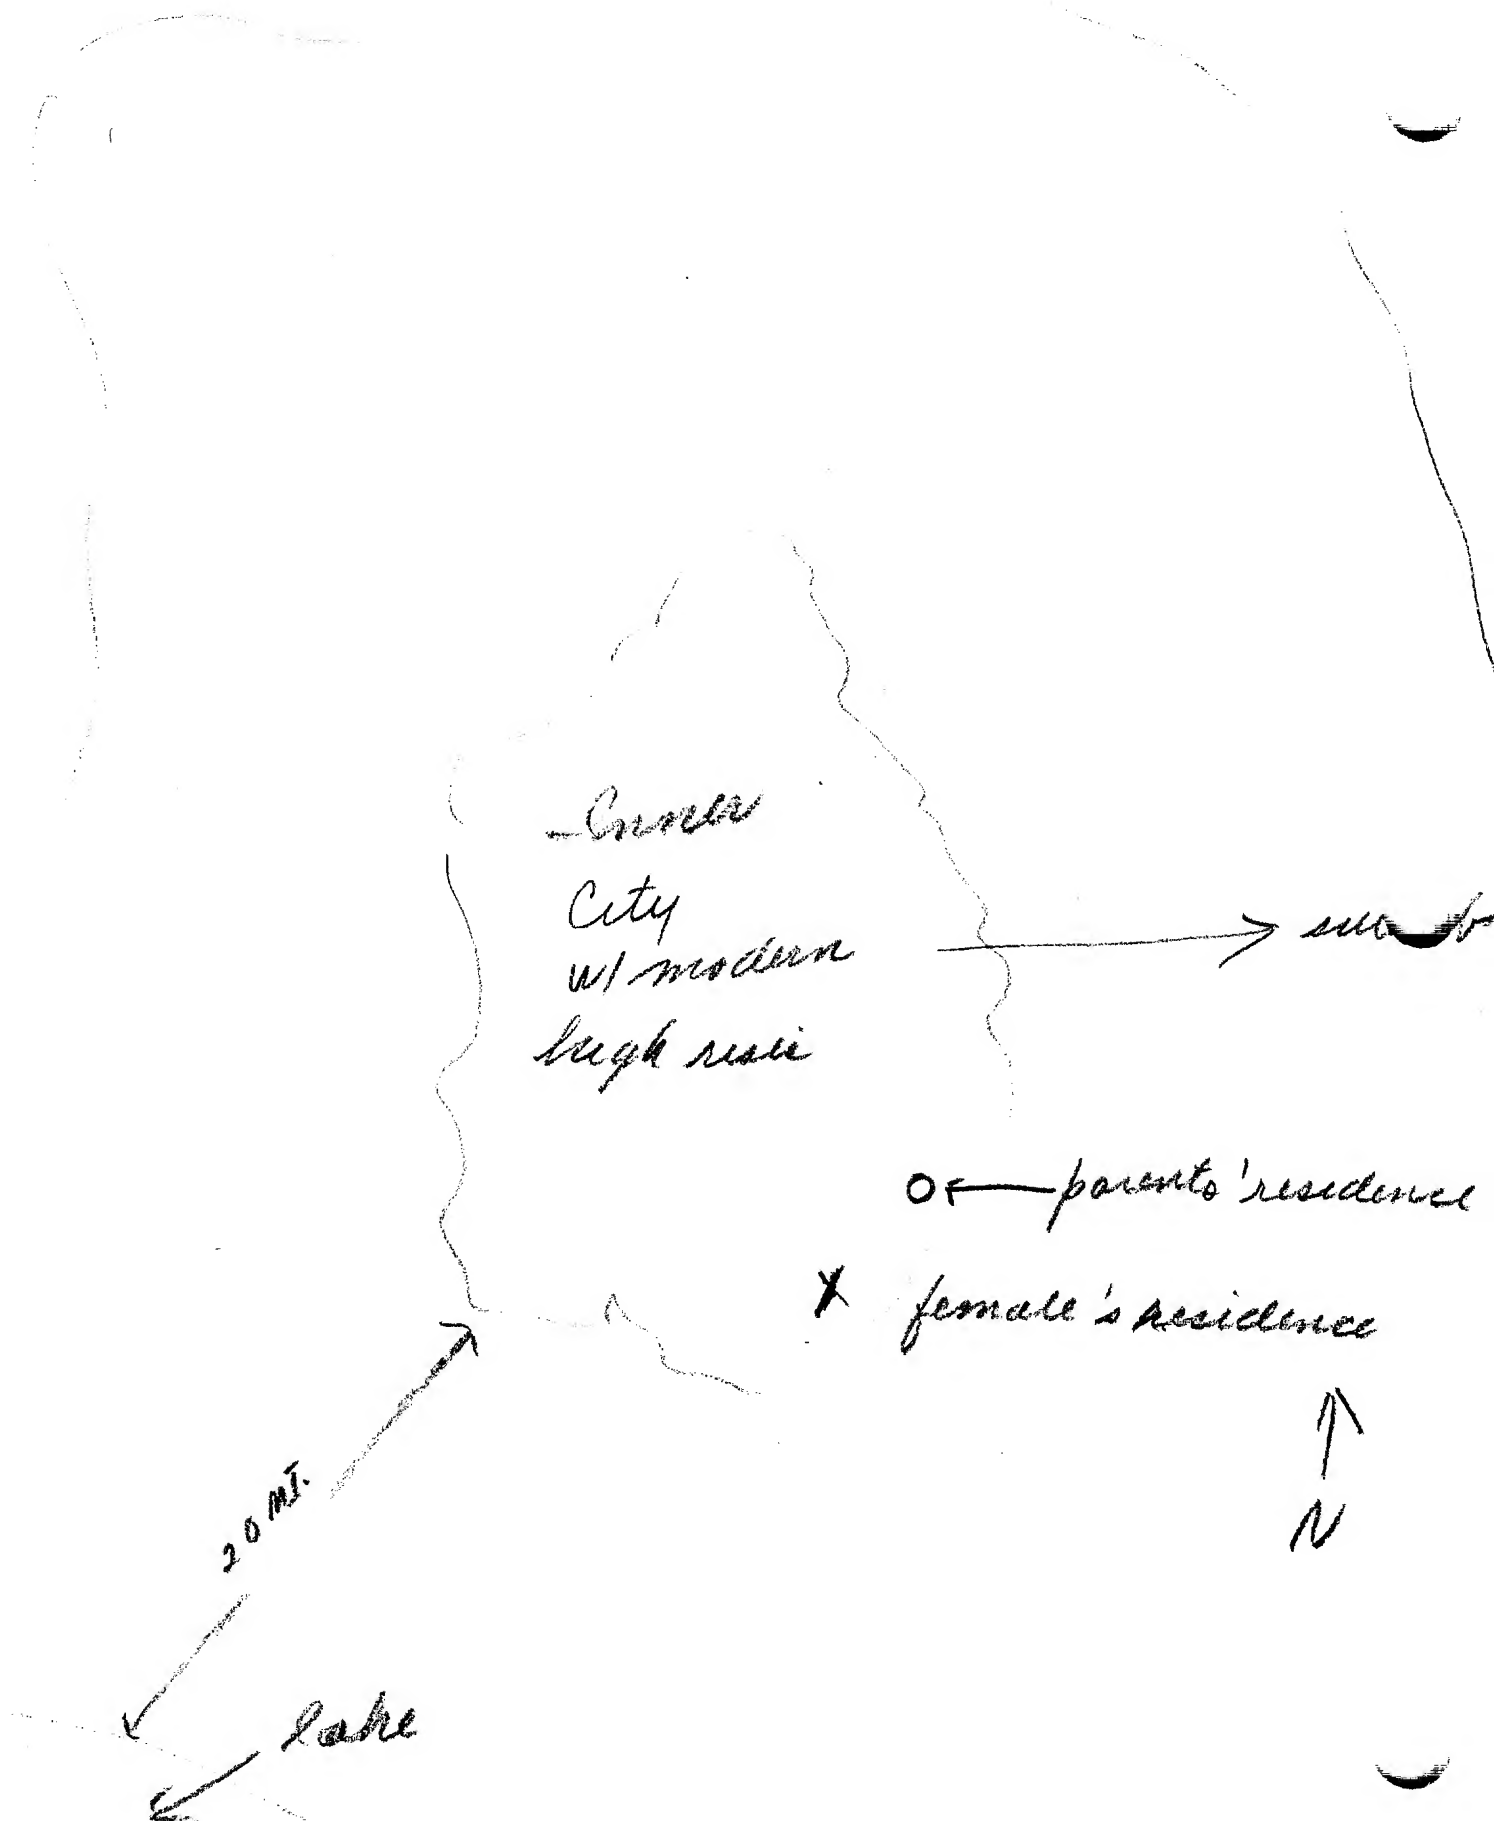 Inner
City
w/ modern
high rises
parents' residence
X female's residence
N
20 MI.
lake